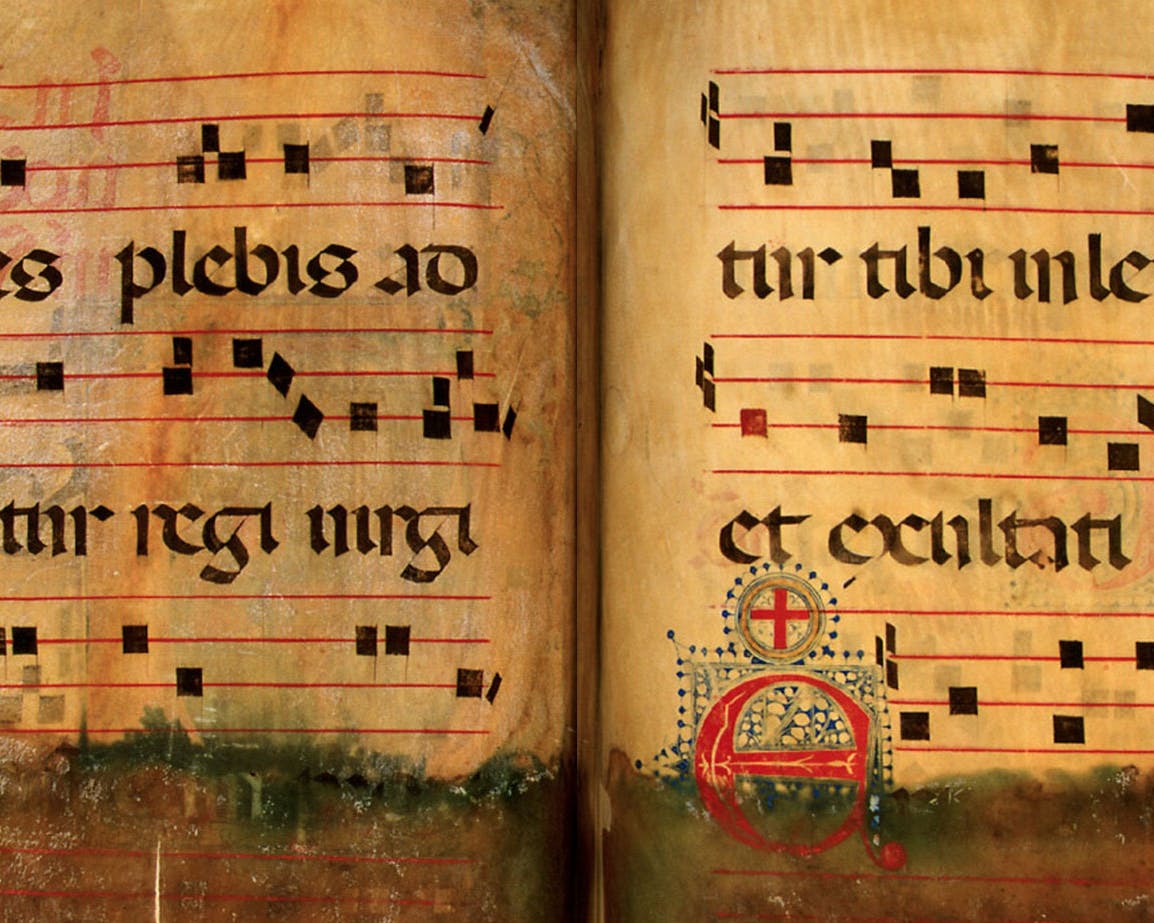 es plebis ad
tur regi uirgi
tur tibi inle
et exultati
E